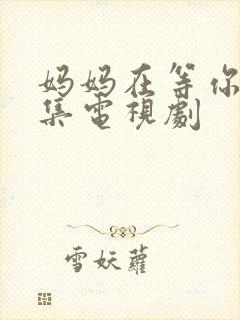 妈妈在等你
集電視劇
雪妖蘿